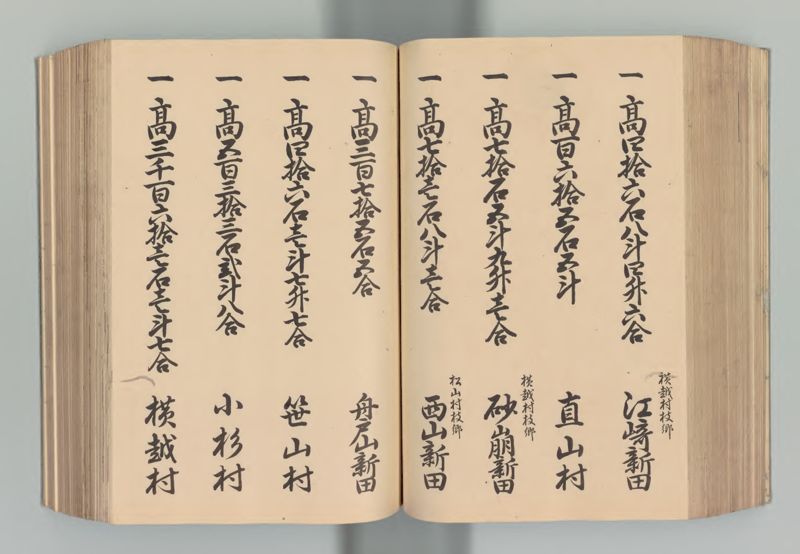 一 高四拾六石八斗四升六合
横越村枝郷
江崎新田
一 高百六拾五石五斗
直山村
一 高七拾石五斗九升壱合
横越村枝郷
砂崩新田
一 高七拾壱石八斗壱合
松山村枝郷
西山新田
一 高三百七拾五石五合
舟戸山新田
一 高四拾六石壱斗七升七合
笹山村
一 高五百三拾三石弐斗八合
小杉村
一 高三千百六拾壱石壱斗七合
横越村